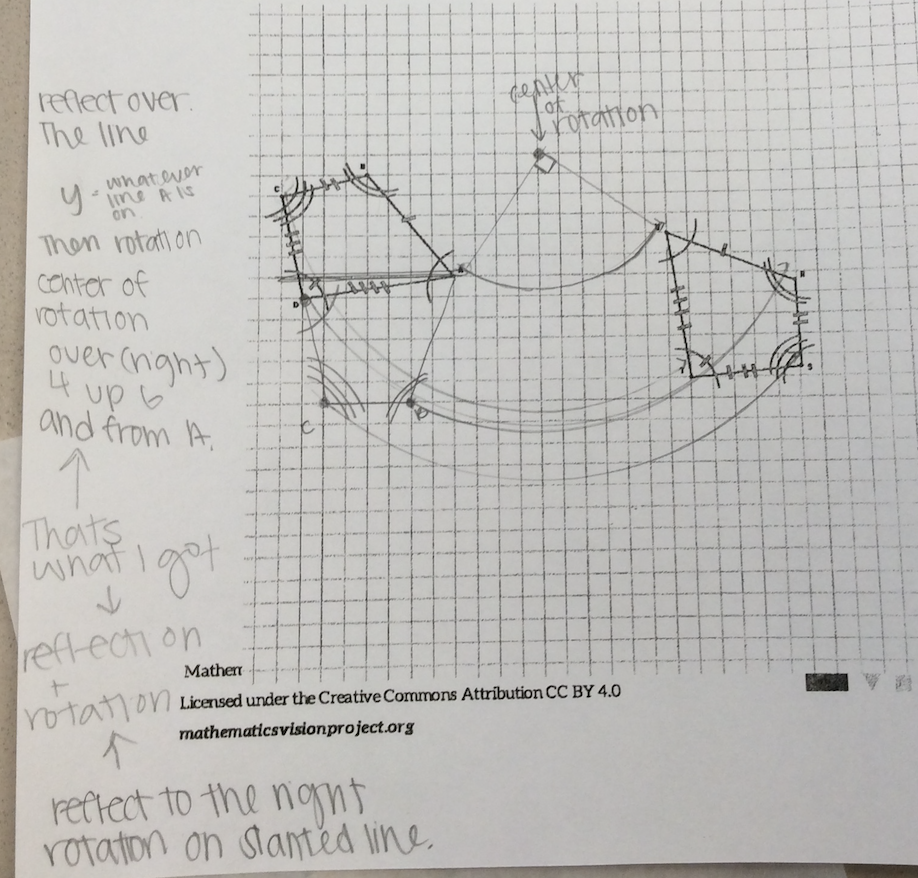 center
of
rotation
reflect over.
The line
y = whatever
line A is
on.
Then rotation
center of
rotation
over (right)
4 up 6
and from A.
Thats
what I got
reflection
+
rotation
reflect to the right
rotation on slanted line.
C
B
D
A
C
B
Mathem
Licensed under the Creative Commons Attribution CC BY 4.0
mathematicsvisionproject.org